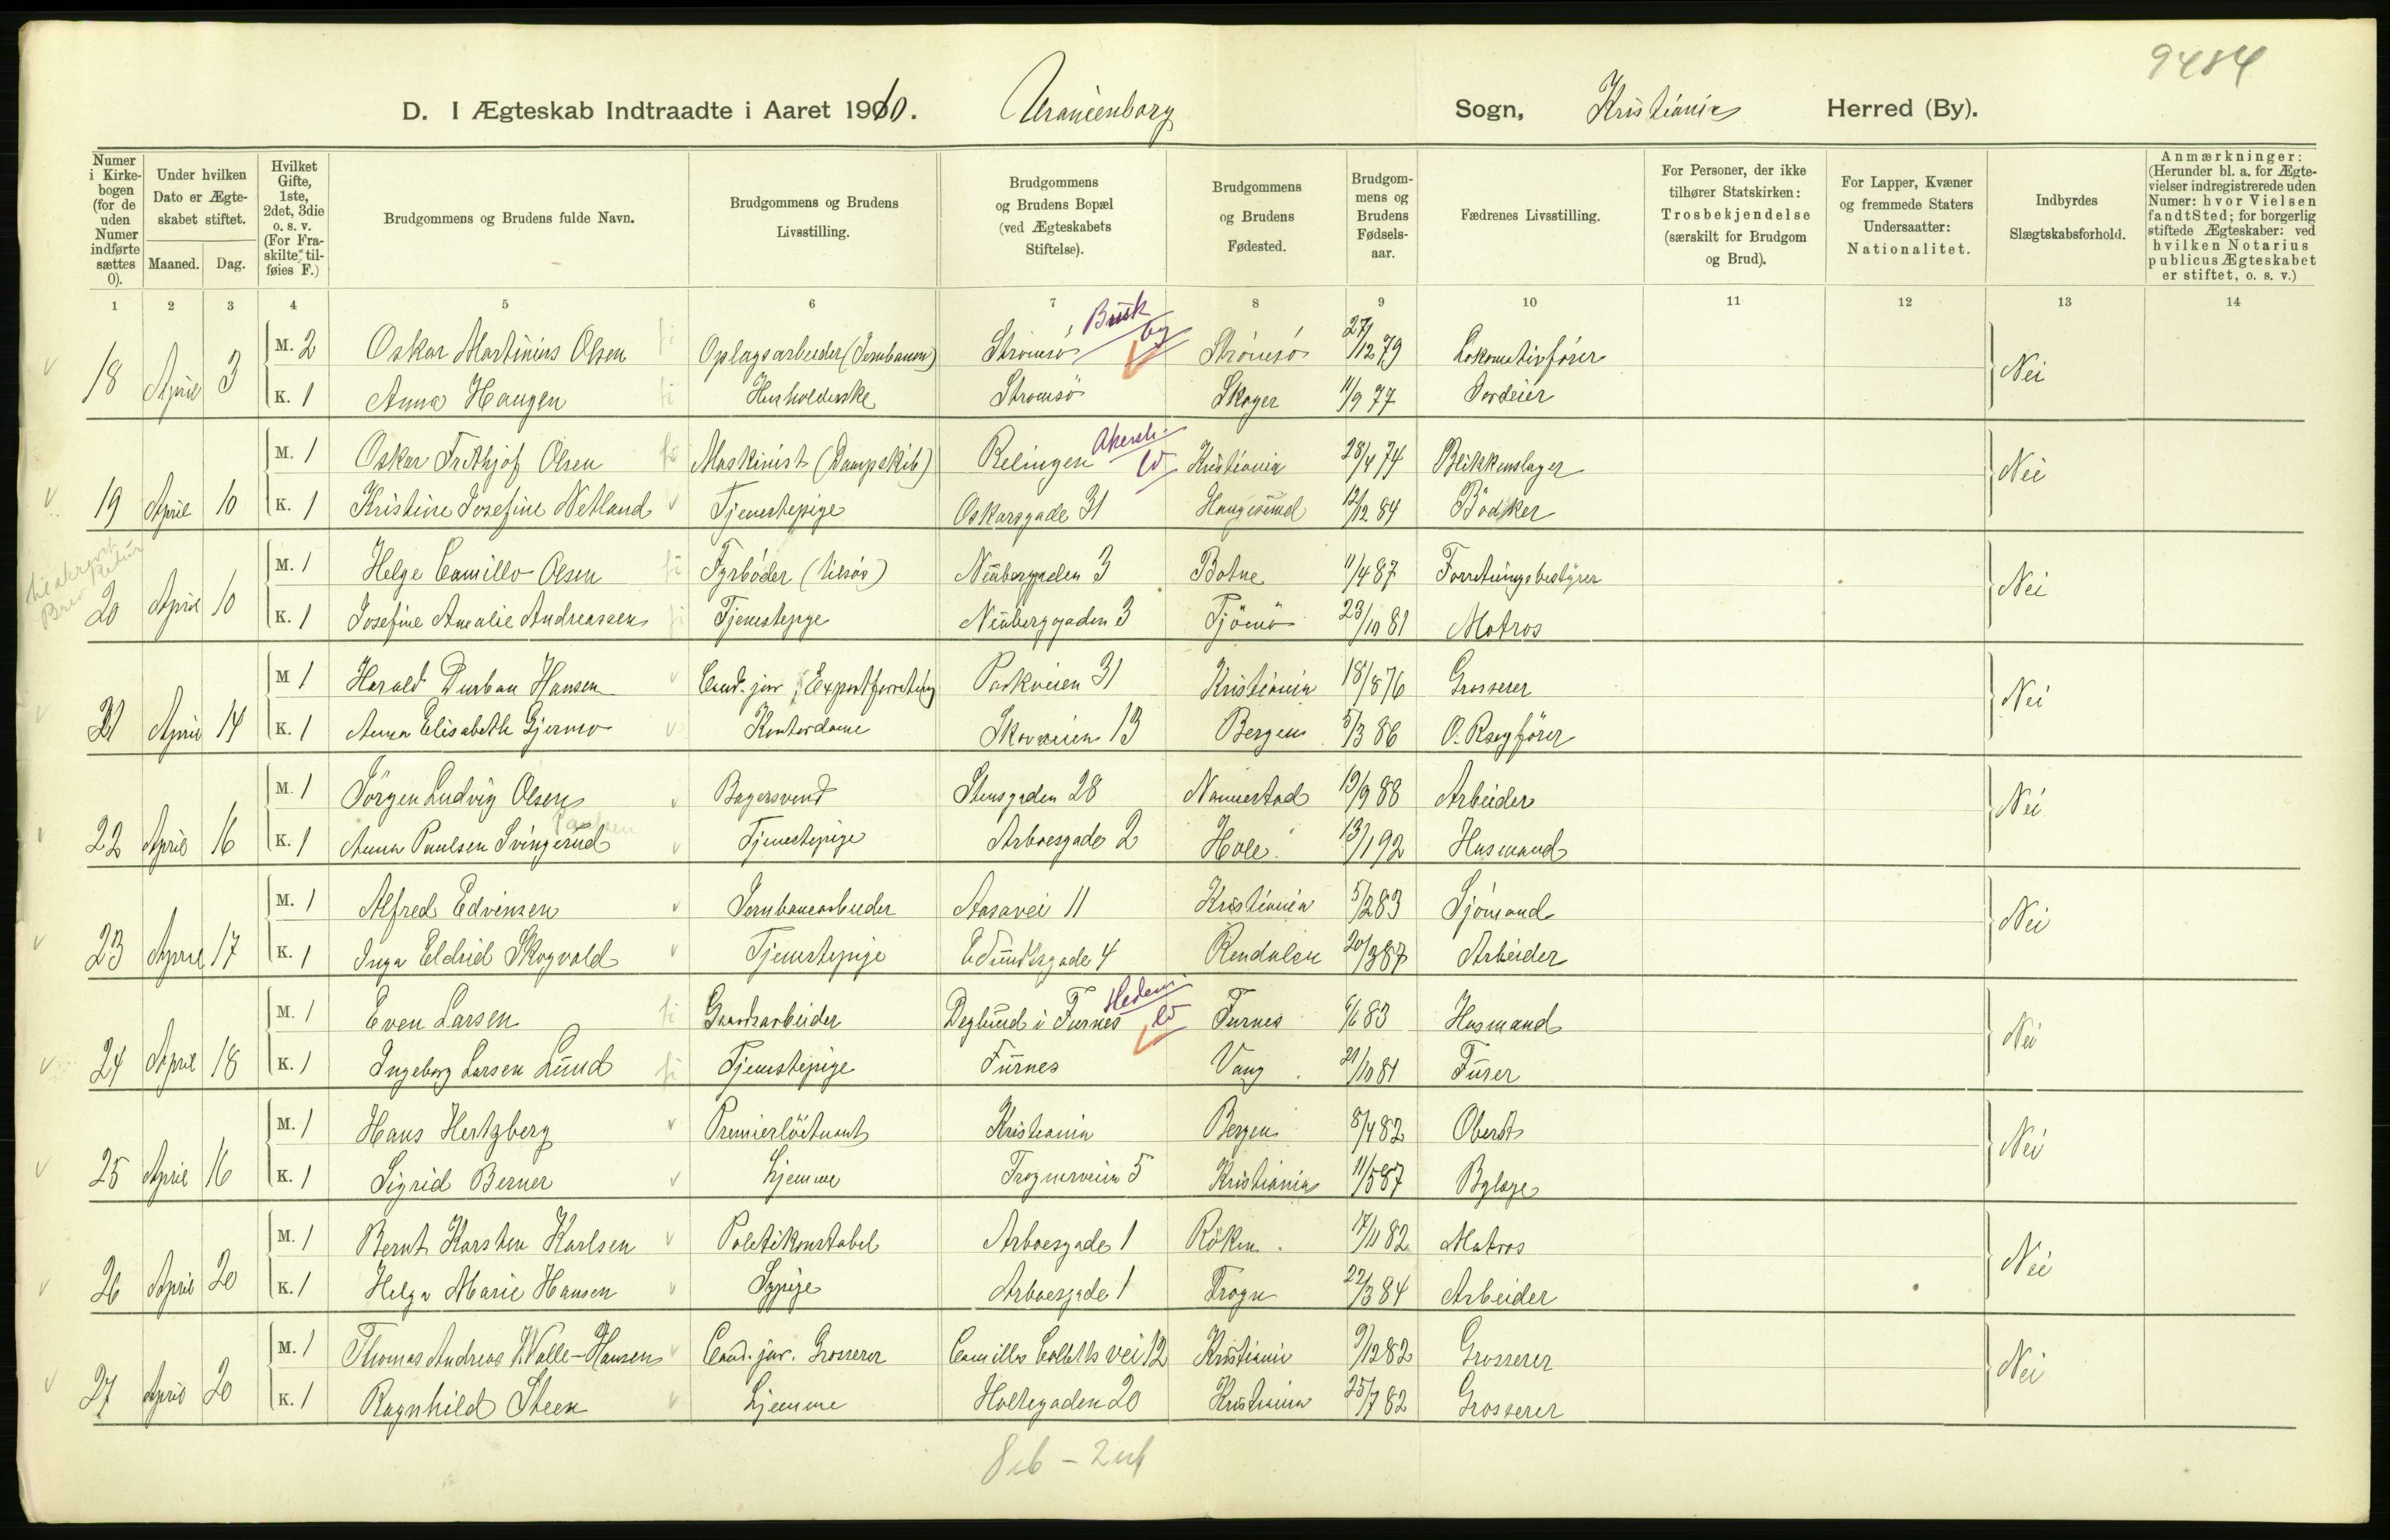 9484
D. I Ægteskab Indtraadte i Aaret 1910. Uranienborg Sogn, Kristiania Herred (By).
Numer i Kirkebogen (for de uden Numer indførte sættes 0).
Under hvilken Dato er Ægteskabet stiftet.
Maaned. Dag.
Hvilket Gifte, 1ste, 2det, 3die o. s. v. (For Fraskilte tilføies F.)
Brudgommens og Brudens fulde Navn.
Brudgommens og Brudens Livsstilling.
Brudgommens og Brudens Bopæl (ved Ægteskabets Stiftelse).
Brudgommens og Brudens Fødested.
Brudgommens og Brudens Fødselsaar.
Fædrenes Livsstilling.
For Personer, der ikke tilhører Statskirken: Trosbekjendelse (særskilt for Brudgom og Brud).
For Lapper, Kvæner og fremmede Staters Undersaatter: Nationalitet.
Indbyrdes Slægtskabsforhold.
Anmærkninger: (Herunder bl. a. for Ægtevielser indregistrerede uden Numer: hvor Vielsen fandt Sted; for borgerlig stiftede Ægteskaber: ved hvilken Notarius publicus Ægteskabet er stiftet, o. s. v.)
1 2 3 4 5 6 7 8 9 10 11 12 13 14
Busk by
M. 2 Oskar Martinius Olsen Oplagsarbeider (Jernbanen) Strömsö Strömsö 27/12 79 Lokomotivförer
18 April 3 Nei
K. 1 Anna Haugen Husholderske Strömsö Skoger 11/9 77 Gordeier
M. 1 Oskar Frithjof Olsen Maskinist (Dampskib) Relingen Akersh. ld Kristiania 28/4 74 Blikkenslager
19 April 10 Nei
K. 1 Kristine Josefine Netland Tjenestepige Oskarsgade 31 Haugesund 12/12 84 Bödker
M. 1 Helge Camillo Olsen Fyrböder (tilsös) Neuberggaden 3 Botne 11/4 87 Forretningsbestyrer
20 April 10 Nei
K. 1 Josefine Amalie Andreassen Tjenestepige Neuberggaden 3 Tjömö 23/10 81 Matros
M 1 Harald Durban Hansen Cand. jur. Exportforretning Parkveien 31 Kristiania 18/8 76 Grosserer
21 April 14 Nei
K. 1 Anna Elisabeth Gjermo Kontordame Skovveien 13 Bergen 5/3 86 O. Rsagförer
M. 1 Jörgen Ludvig Olsen Bagersvend Stensgaden 28 Nannestad 19/9 88 Arbeider
Paulsen
22 April 16 Nei
K. 1 Anna Paulsen Svingerud Tjenestepige Arboesgade 2 Hole 13/1 92 Husmand
M. 1 Alfred Edvinsen Jernbanearbeider Aasavei 11 Kristiania 5/2 83 Sjömand
23 April 17 Nei
K. 1 Inga Eldrid Skogvold Tjenestepige Eilert Sundtsgade 4 Rendalen 20/3 87 Arbeider
M. 1 Even Larsen Gaardsarbeider Deglund i Furnes Hedem ld Furnes 6/6 83 Husmand
24 April 18 Nei
K. 1 Ingeborg Larsen Lund Tjenestepige Furnes Vang 21/10 81 Furer
M. 1 Hans Hertzberg Premierlöitnant Kristiania Bergen 8/4 82 Oberst
25 April 16 Nei
K. 1 Sigrid Berner Hjemme Frognerveien 5 Kristiania 11/5 87 Bylæge
M. 1 Bernt Karsten Karlsen Politikonstabel Arboesgade 1 Röken 17/11 82 Matros
26 April 20 Nei
K. 1 Helga Marie Hansen Sypige Arboesgade 1 Frogn 22/3 84 Arbeider
M. 1 Thomas Andreas Walle-Hansen Cand. jur. Grosserer Camilla Colletts vei 12 Kristiania 9/12 82 Grosserer
27 April 20 Nei
K. 1 Ragnhild Steen Hjemme Holtegaden 20 Kristiania 25/7 82 Grosserer
8 ib - 2 ub